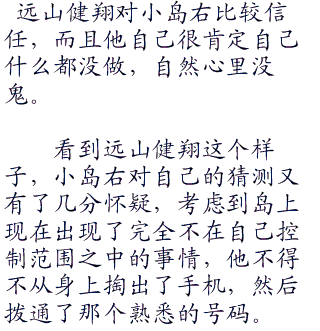 远山健翔对小岛右比较信
任，而且他自己很肯定自己
什么都没做，自然心里没
鬼。
看到远山健翔这个样
子，小岛右对自己的猜测又
有了几分怀疑，考虑到岛上
现在出现了完全不在自己控
制范围之中的事情，他不得
不从身上掏出了手机，然后
拨通了那个熟悉的号码。